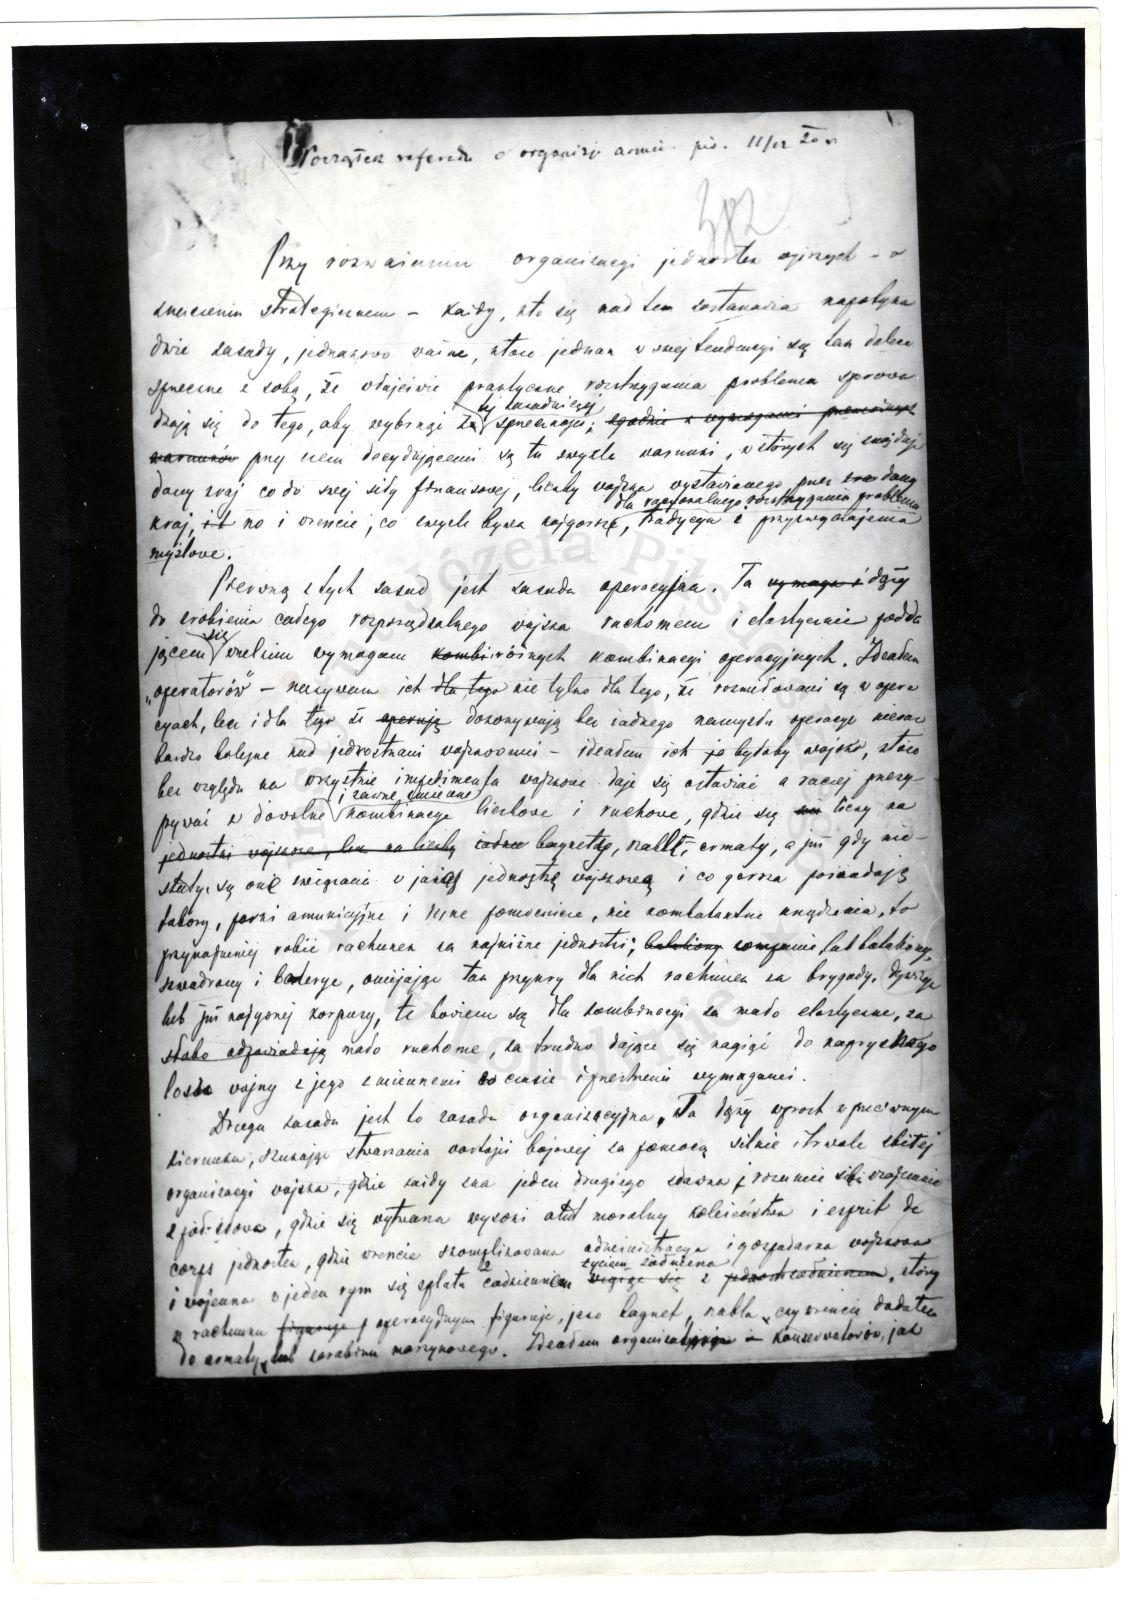 Początek referatu o organizacji armii pis. 11/IX 20 r.
382
Przy rozważaniu organizacji jednostek wyższych – o
znaczeniu strategicznem – każdy, kto się nad tem zastanawia napotyka
dwie zasady, jednakowo ważne, które jednak w swej tendencji są tak dalece
sprzeczne z sobą, że właściwie praktyczne rozstrzygania problemu sprowa
dzają się do tego, aby wybrnąć z tej zasadniczej sprzeczności; zgodnie z wymogami
warunków przy czem decydującemi są tu zwykle warunki, w których się znajduje
dany kraj co do swej siły finansowej, liczby wojska wystawianego przez dany
kraj, no i wreszcie, co zwykle bywa najgorsze, dla racjonalnego rozstrzygania problemu, tradycja i przyzwyczajenia
myślowe.
Pierwszą z tych zasad jest zasada operacyjna. Ta wymaga i dąży
do zrobienia całego rozporządzalnego wojska ruchomem i elastycznie podda
jącem się wszelkim wymaganiom różnych kombinacji operacyjnych. Ideałem
„operatorów" – nazywam ich dla tego nie tylko dla tego, że rozmiłowani są w opera
cjach, lecz i dla tego że operują dokonywają bez żadnego namysłu operacje nieraz
bardzo bolesne nad jednostkami wojskowemi – ideałem ich byłoby wojsko, które
bez względu na wszystkie impedimenta wojskowe daje się ustawiać a raczej przesy-
pywać w dowolne i zawsze zmienne kombinacje liczbowe i ruchowe, gdzie się liczy na
jednostki wojskowe, lecz na liczbę bagnetów, szabli, armaty, a już gdy nie-
stety są one związane w jakąś jednostkę wojskową i co gorsza posiadają
tabory, parki amunicyjne i różne pomocnicze, nie kombatantne urządzenia, to
przynajmniej robić rachunek na najniższe jednostki; bataljony kompanie lub bataljony,
szwadrony i baterje, omijając tak przykry dla nich rachunek na brygady, dywizje
lub już najgorzej korpusy, te bowiem są dla kombinacji za mało elastyczne, za
słabo odpowiadają mało ruchome, za trudno dające się nagiąć do kapryśnego
losu wojny z jego zmiennemi co czasie i przestrzeni wymaganiami.
Druga zasada jest to zasada organizacyjna. Ta dąży wprost w przeciwnym
kierunku, szukając stwarzania wartości bojowej za pomocą silnie i trwale zbitej
organizacji wojska, gdzie każdy zna jeden drugiego zdawna i rozumie się wzajemnie
z pół-słowa, gdzie się wytwarza wysoki atut moralny koleżeństwa i esprit de
corps jednostek, gdzie wreszcie skomplikowana administracja i gospodarka wojskowa
i wojenna w jeden rym się splata z codziennem życiem żołnierza, który
w rachunku figuruje operacyjnym figuruje, jako bagnet, szabla, czy wreszcie dodatek
do armaty lub karabinu maszynowego. Ideałem organizacji konserwatorów, jak